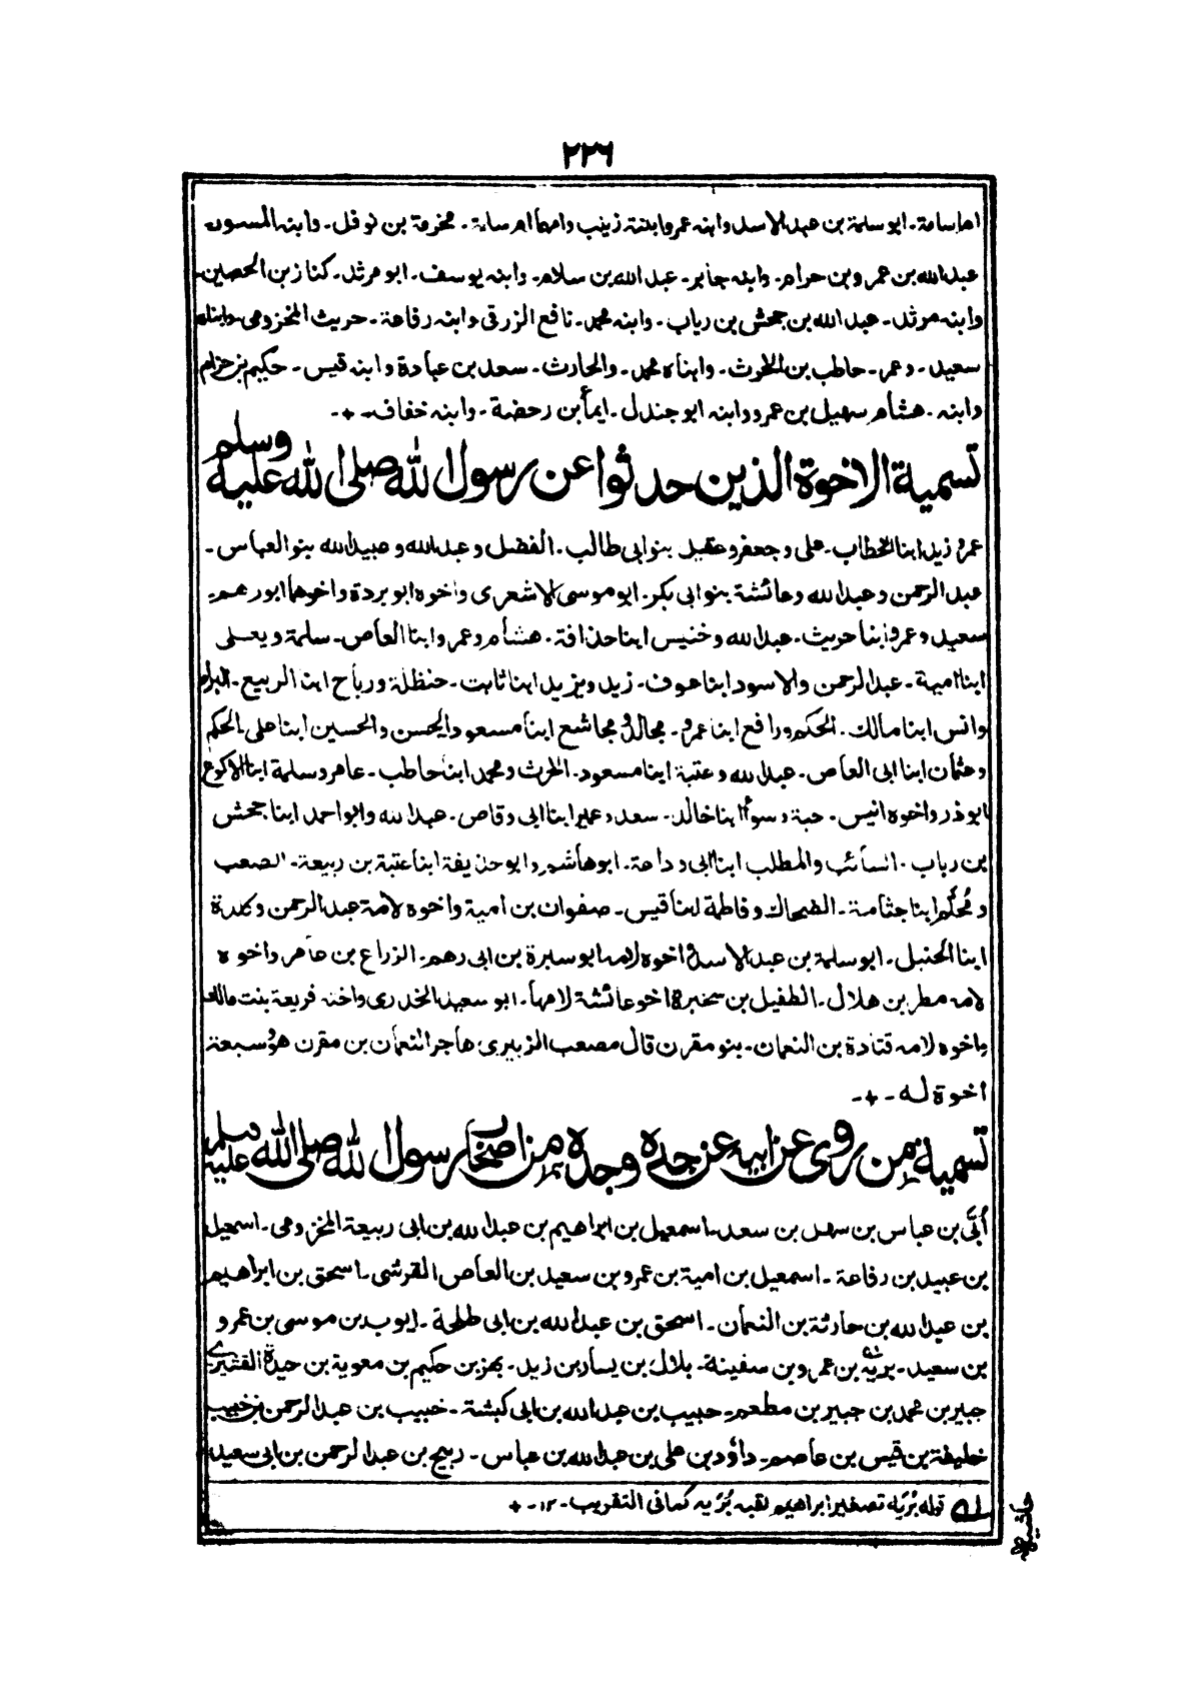 ٢٢٦
ابو سلمة بن عبد الاسد وابنه عمر وابنته زينب وامها ام سلمة - مخرمة بن نوفل - وابنه المسور
عبد الله بن عمرو بن حرام - وابنه جابر - عبد الله بن سلام - وابنه يوسف - ابو مرثد - كناز بن الحصين
وابنه مرثد - عبد الله بن جحش بن رياب - وابنه محمد - نافع الزرقى وابنه رفاعة - حريث المخزومى - وابناه
سعيد - وعمر - حاطب بن الحرث - وابناه محمد - والحارث - سعد بن عبادة وابنه قيس - حكيم بن حزام
وابنه - هشام سهيل بن عمرو وابنه ابو جندل - ايماء بن رحضة - وابنه خفاف -+-
تسمية الاخوة الذين حدثوا عن رسول الله صلى الله عليه وسلم
عمر وزيد ابنا الخطاب - على وجعفر وعقيل بنو ابى طالب - الفضل وعبد الله وعبيد الله بنو العباس -
عبد الرحمن وعبد الله وعائشة بنو ابى بكر - ابو موسى الاشعرى واخوه ابو بردة واخوهما ابو رهم -
سعيد وعمرو ابنا حريث - عبد الله وخنيس ابنا حذافة - هشام وعمرو ابنا العاص - سلمة ويعلى
ابنا امية - عبد الرحمن والاسود ابنا عوف - زيد ويزيد ابنا ثابت - حنظلة ورباح ابنا الربيع - البراء
وانس ابنا مالك - الحكم ورافع ابنا عمرو - مجالد ومجاشع ابنا مسعود الحسن والحسين ابنا على - الحكم
وعثمان ابنا ابى العاص - عبد الله وعتبة ابنا مسعود - الحرث ومحمد ابنا حاطب - عامر وسلمة ابنا الاكوع
ابو ذر واخوه انيس - حبة وسواء ابنا خالد - سعد وعمير ابنا ابى وقاص - عبد الله وابو احمد ابنا جحش
بن رياب - السائب والمطلب ابنا ابى وداعة - ابو هاشم وابو حذيفة ابنا عتبة بن ربيعة - الصعب
ومُحَلِّم ابنا جثامة - الضحاك وفاطمة ابنا قيس - صفوان بن امية واخوه لامه عبد الرحمن وكلدة
ابنا الحنبل - ابو سلمة بن عبد الاسد واخوه لامه ابو سبرة بن ابى رهم - الزراع بن عامر واخوه
لامه مطر بن هلال - الطفيل بن سخبرة اخو عائشة لامها - ابو سعيد الخدرى واخته فريعة بنت مالك
واخوه لامه قتادة بن النعمان - بنو مقرن قال مصعب الزبيرى هاجر النعمان بن مقرن هو وسبعة
اخوة له -+-
تسمية من روى عن ابيه عن جده وجده من اصحاب رسول الله صلى الله عليه وسلم
أُبَّى بن عباس بن سهل بن سعد - اسمعيل بن ابراهيم بن عبد الله بن ابى ربيعة المخزومى - اسمعيل
بن عبيد بن رفاعة - اسمعيل بن امية بن عمرو بن سعيد بن العاص القرشى - اسحق بن ابراهيم
بن عبد الله بن حارثة بن النعمان - اسحق بن عبد الله بن ابى طلحة - ايوب بن موسى بن عمرو
بن سعيد - بريه بن عمرو بن سفينة - بلال بن يسار بن زيد - بهز بن حكيم بن معوية بن حيدة القشيرى
جبير بن محمد بن جبير بن مطعم - حبيب بن عبد الله بن ابى كبشة - خبيب بن عبد الرحمن بن خبيب
خليفة بن قيس بن عاصم - داؤد بن على بن عبد الله بن عباس - ربيح بن عبد الرحمن بن ابى سعيد
قوله بُرَيه تصغير ابراهيم لقبه بُرَيه كما فى التقريب - ١٢ - +
حاشيه